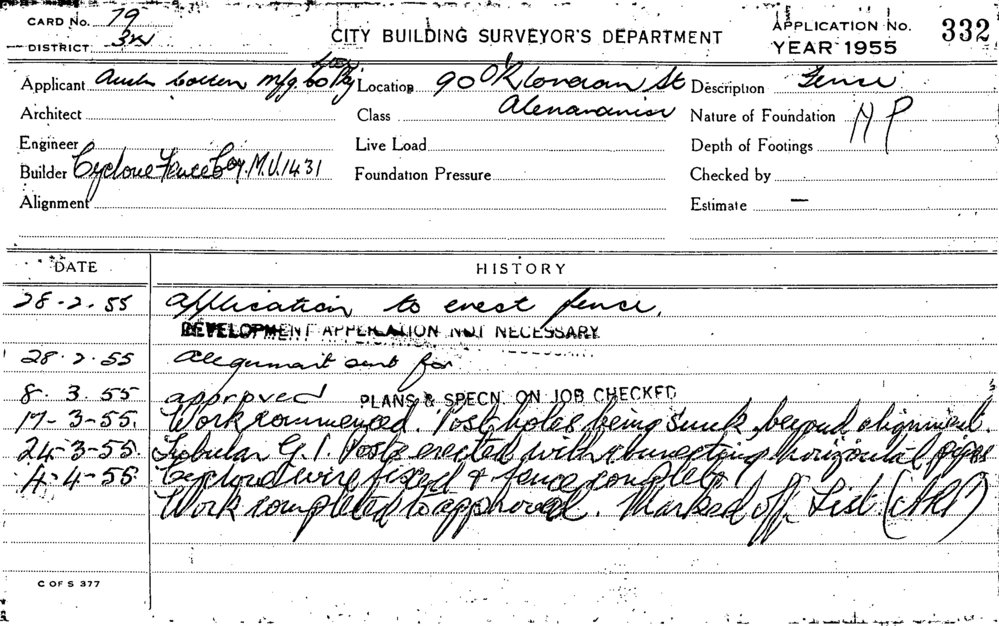 CARD No. 79
DISTRICT 3W
CITY BUILDING SURVEYOR'S DEPARTMENT
APPLICATION No. 332
YEAR 1955
Applicant Cotton Mfg Co Pty
Location 90 St
Description Fence
Architect
Class
Nature of Foundation
Engineer
Live Load
Depth of Footings
Builder Cyclone Fence Coy. M.U.1431
Foundation Pressure
Checked by
Alignment
Estimate —
DATE
HISTORY
28-2-55 application to erect fence.
DEVELOPMENT APPLICATION NOT NECESSARY
28.2.55 sent for
8.3.55 approved PLANS & SPECN. ON JOB CHECKED
17-3-55. Work commenced. Post holes being sunk, beyond alignment.
24-3-55. Tubular G.I. Posts erected with connecting horizontal pipes
4-4-55. wire fixed & fence complete
Work completed to approval. Marked off List.
C OF S 377